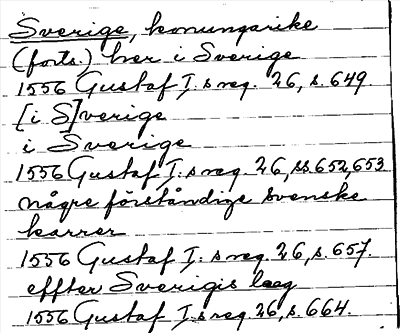 Sverige, konungarike
(forts.) her i Sverige
1556 Gustaf I:s reg. 26, s. 649.
[i S]verige
i Sverige
1556 Gustaf I:s reg. 26, ss. 652, 653
någre förståndige Svenske
karrer
1556 Gustaf I:s reg. 26, s. 657.
effter Sverigis lag
1556 Gustaf I:s reg. 26, s. 664.